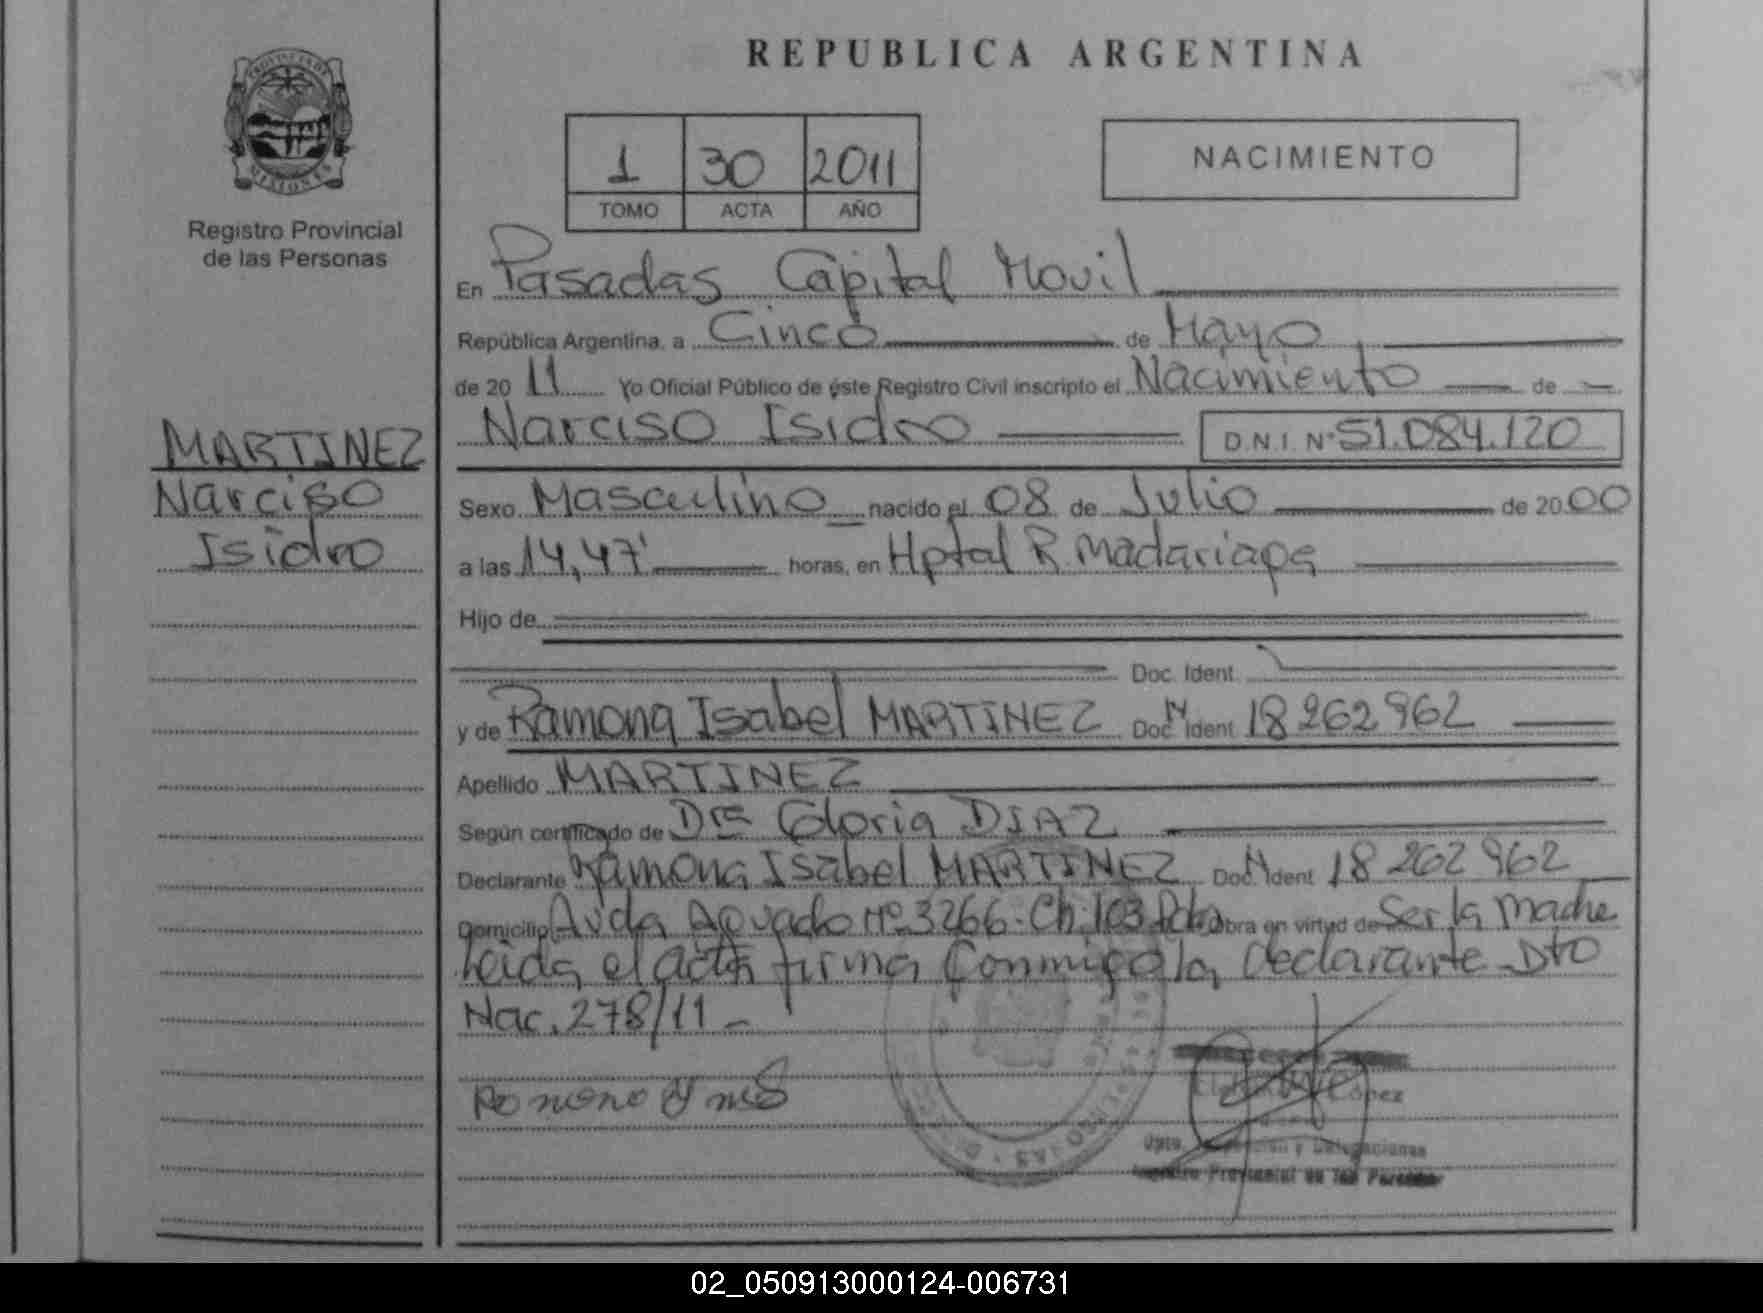 REPUBLICA ARGENTINA
PROVINCIA DE
MISIONES
Registro Provincial
de las Personas
1 30 2011
TOMO ACTA AÑO
NACIMIENTO
En Pasadas Capital Movil
República Argentina, a Cinco de Mayo
de 20 11 Yo Oficial Público de éste Registro Civil inscripto el Nacimiento de
Narciso Isidro D.N.I. Nº 51.084.120
MARTINEZ
Narciso
Isidro
Sexo Masculino nacido el 08 de Julio de 2000
a las 14,47' horas, en Hptal R. Madariaga
Hijo de
Doc. Ident.
y de Ramona Isabel MARTINEZ Doc. N Ident 18 262 962
Apellido MARTINEZ
Según certificado de Dra Gloria DIAZ
Declarante Ramona Isabel MARTINEZ Doc. N Ident 18 262 962
Domicilio Avda Aguado Nº 3266 - Ch. 103 Obra en virtud de Ser la Madre
Leida el acta firma Conmigo la Declarante Dto
Nac. 278/11 -
López
Dpto. y Delegaciones
Registro Provincial de las Personas
02_050913000124-006731